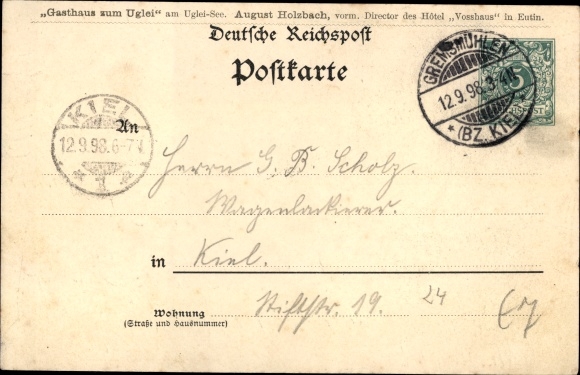 „Gasthaus zum Uglei“ am Uglei-See. August Holzbach, vorm. Director des Hôtel „Vosshaus“ in Eutin.
Deutsche Reichspost
Postkarte
GREMSMÜHLEN
12.9.98.3-4N.
* (BZ. KIEL)
5
KIEL
12.9.98.6-7N
* 1 *
An
Herrn G. B. Scholz.
Wagenlackierer.
in Kiel.
Wohnung Stiftstr. 19. 24
(Straße und Hausnummer)